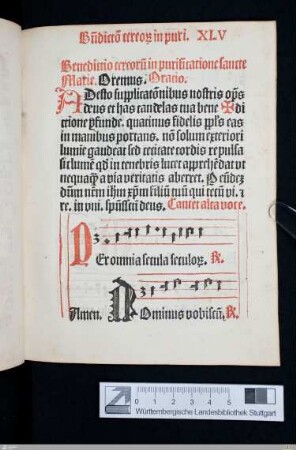 Bñdictō cereoꝝ in puri. XLV
Benedictio cereorū in purificatione sancte
Marie. Oremus. Oratio.
Adesto supplicatōnibus nostris oīps
deus et has candelas tua bene ✠ di
ctione ꝑfunde. quatinus fidelis ppl's eas
in manibus portans. nō solum exteriori
lumīe gaudeat sed cecitate cordis repulsa
sic lumē qd in tenebris lucet apprehēdat vt
nequaqꝫ a via veritatis aberret. Per eūdeꝫ
dūm nrm ihm xpm filiū tuū qui tecū vi. et
re. in vni. spūssctī deus. Cantet alta voce.
Per omnia secula seculoꝝ. R.
Amen. Dominus vobiscū. R.
cm 1 2 3 4 5
Württembergische Landesbibliothek Stuttgart